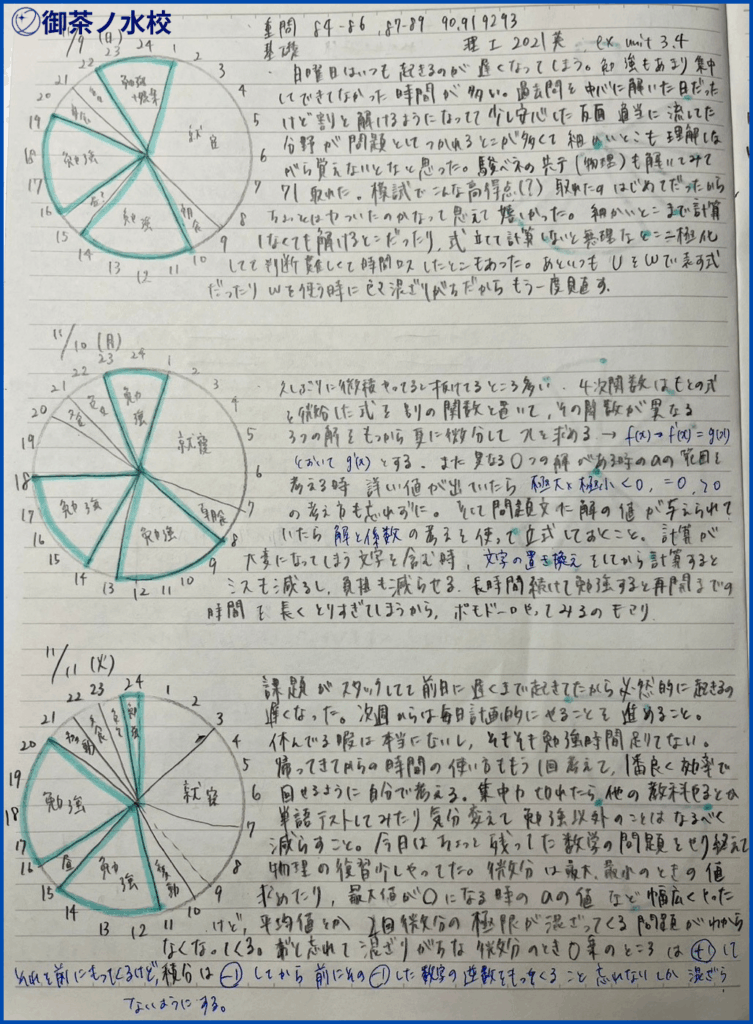 御茶ノ水校
重問 84-86, 87-89 90,91 92 93
基礎 理工 2021英 ex unit 3.4
11/9 (日)
23 24 1 2 3 4 5 6 7 8 9 10 11 12 13 14 15 16 17 18 19 20 21 22
就寝
朝食
勉強
勉強
日曜日はいつも起きるのが遅くなってしまう。勉強もあまり集中
してできてなかった時間が多い。過去問を中心に解いた日だった
けど割と解けるようになってて少し安心した反面 適当に流してた
分野が問題としてつかれるとこが多くて細かいとこも理解しな
がら覚えないとなと思った。駿ベネの共テ(物理)も解いてみて
71取れた。模試でこんな高得点(?)取れたのはじめてだったから
ちょっとは力ついたのかなって思えて嬉しかった。細かいとこまで計算
しなくても解けるとこだったり、式立てて計算しないと無理なとこ二極化
してて判断難しくて時間ロスしたとこもあった。あといつも UをWで表す式
だったり Wを使う時に 混ざりがちだからもう一度見直す。
11/10 (月)
23 24 1 2 3 4 5 6 7 8 9 10 11 12 13 14 15 16 17 18 19 20 21 22
勉強
就寝
朝食
勉強
勉強
久しぶりに微積やってるし抜けてるところ多い。4次関数はもとの式
を微分した式を の関数と置いて、その関数が異なる
3つの解をもつから更に微分して xを求める → f(x)→f'(x)=g(x)
とおいて g'(x)とする。また異なる○つの解がある時のaの範囲を
考える時 詳しい値が出ていたら 極大×極小<0, =0, >0
の考え方も忘れずに。そして問題文に解の値が与えられて
いたら 解と係数の考えを使って立式しておくこと。計算が
大変になってしまう文字を含む時、文字の置き換えをしてから計算すると
ミスも減るし、負担も減らせる。長時間続けて勉強すると再開までの
時間を長くとりすぎてしまうから、ポモドーロやってみるのもあり
11/11 (火)
22 23 24 1 2 3 4 5 6 7 8 9 10 11 12 13 14 15 16 17 18 19 20 21
勉強
就寝
移動
勉強
昼
勉強
移動
課題がスタックしてて前日に遅くまで起きてたから必然的に起きるの
遅くなった。次週からは毎日計画的にやることを進めること。
休んでる暇は本当にないし、そもそも勉強時間足りてない。
帰ってきてからの時間の使い方をもう1回考えて、1番良く効率で
回せるように自分で考える。集中力切れたら、他の教科やるとか
単語テストしてみたり気分変えて勉強以外のことはなるべく
減らすこと。今日はちょっと残ってた数学の問題をやり終えて
物理の復習少しやってた。微分は最大、最小のときの値
求めたり、最大値が0になる時のaの値など幅広くやった
けど、平均値とか 2回微分の極限が混ざってくる問題がわから
なくなってくる。あと忘れて混ざりがちな微分のとき○乗のところは +1して
それを前にもってくるけど、積分は -1してから前にその-1した数字の逆数をもってくること忘れないしか混ざら
ないようにする。